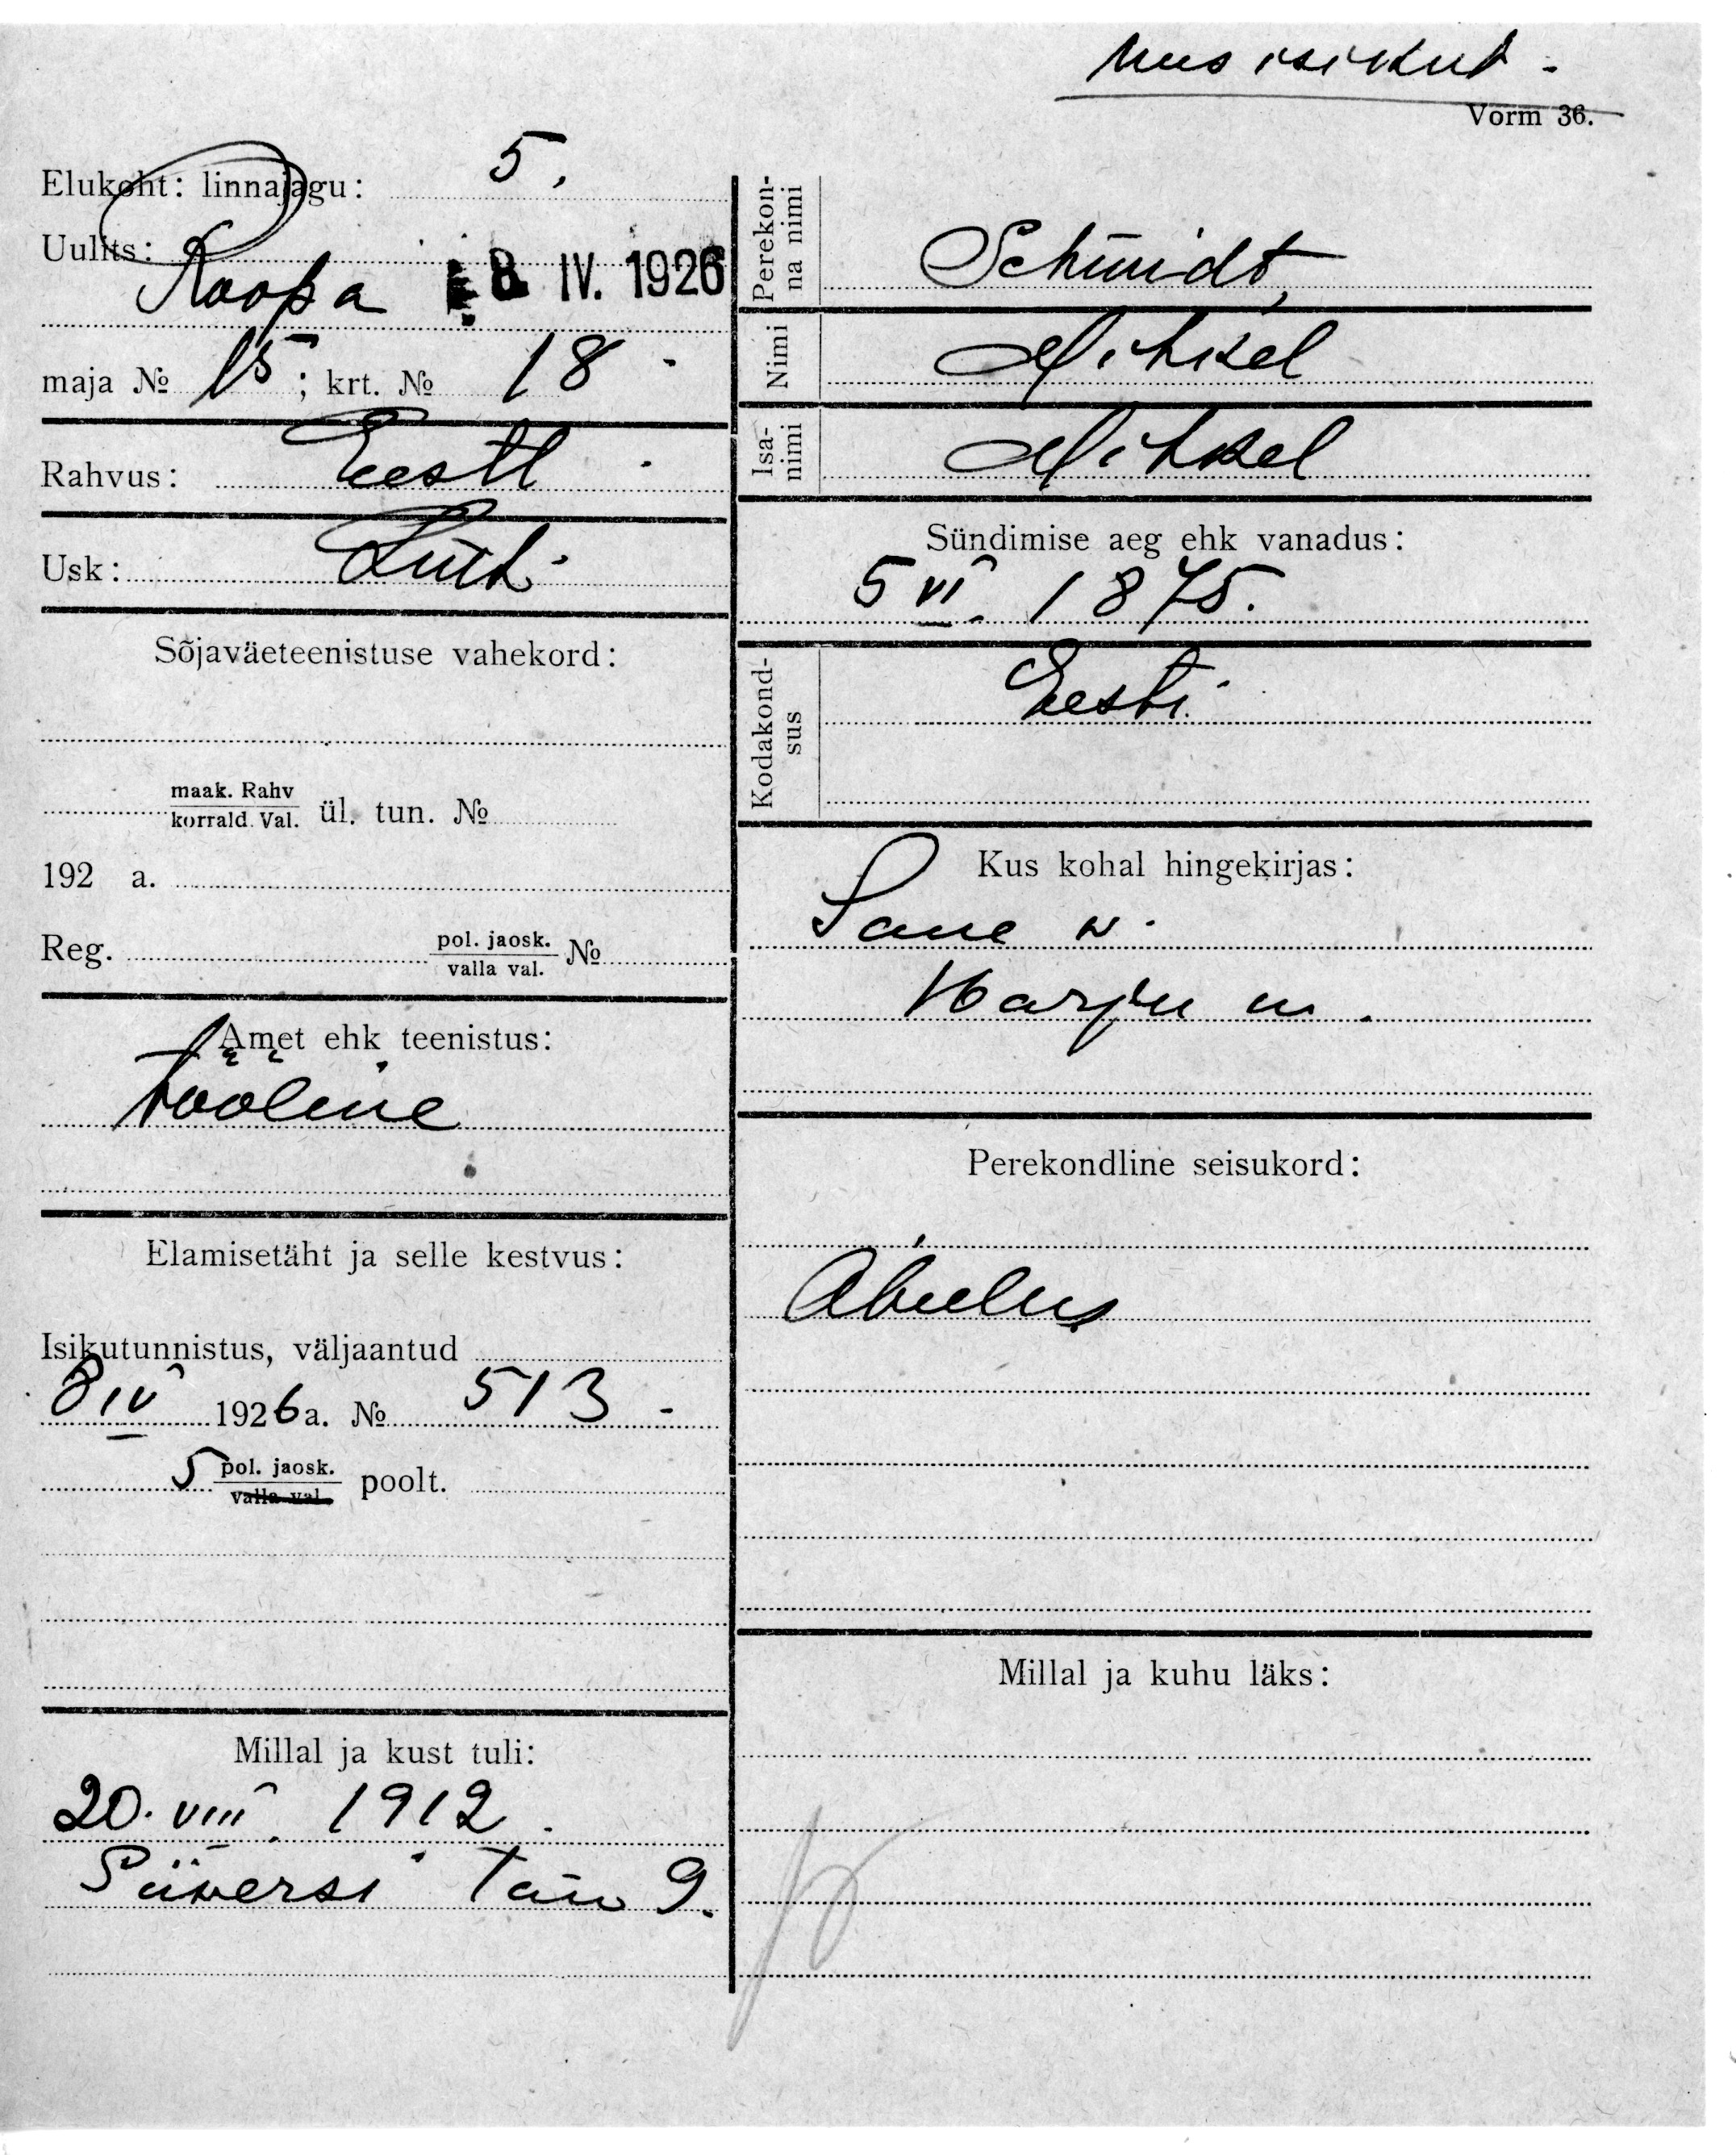 uus isikut.
Vorm 36.
Elukoht: linnajagu: 5.
Uulits:
Koopa 8. IV. 1926
maja № 15; krt. № 18
Rahvus: Eesti
Usk: Luth.
Sõjaväeteenistuse vahekord:
maak. Rahv
korrald. Val. ül. tun. №
192 a.
Reg. pol. jaosk.
valla val. №
Amet ehk teenistus:
tööline
Elamisetäht ja selle kestvus:
Isikutunnistus, väljaantud
8 IV 1926 a. № 513
5 pol. jaosk.
valla val. poolt.
Millal ja kust tuli:
20. VIII. 1912.
tän 9.
Perekon-
na nimi
Schmidt,
Nimi
Mihkel
Isa-
nimi
Mihkel
Sündimise aeg ehk vanadus:
5 VI. 1875.
Kodakond-
sus
Eesti
Kus kohal hingekirjas:
Saue w.
Harju m.
Perekondline seisukord:
Abielus
Millal ja kuhu läks: